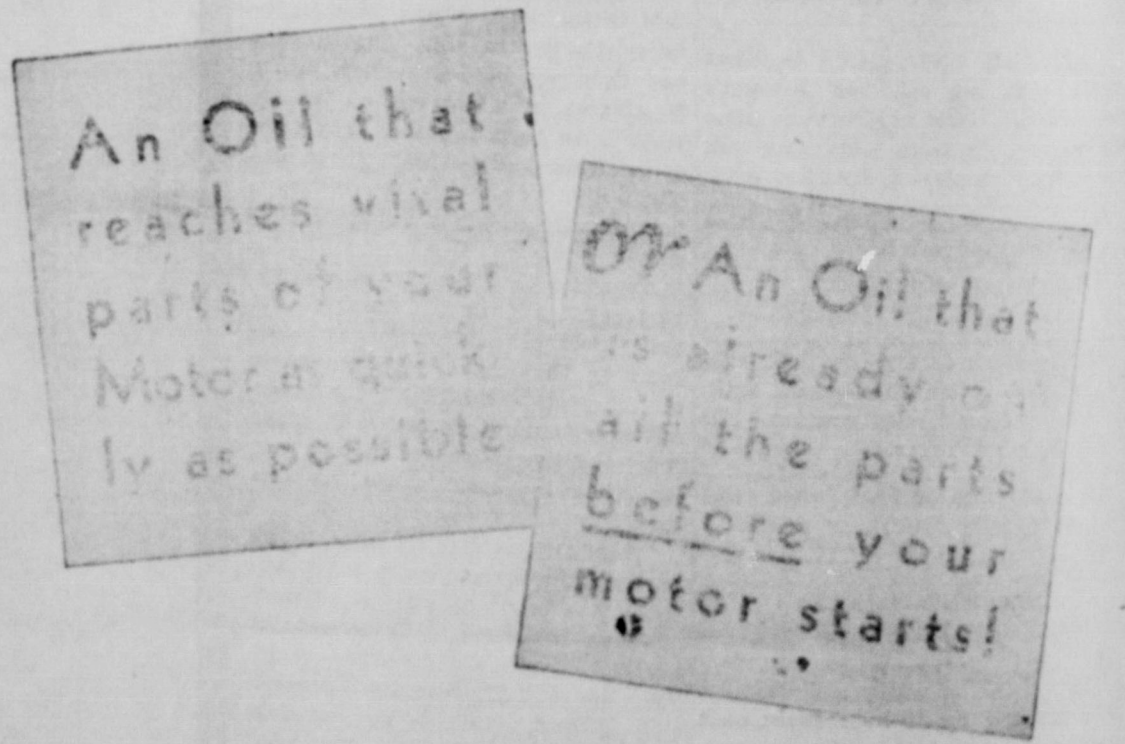 An Oil that
reaches vital
parts of your
Motor as quick
ly as possible
or An Oil that
is already on
all the parts
before your
motor starts!